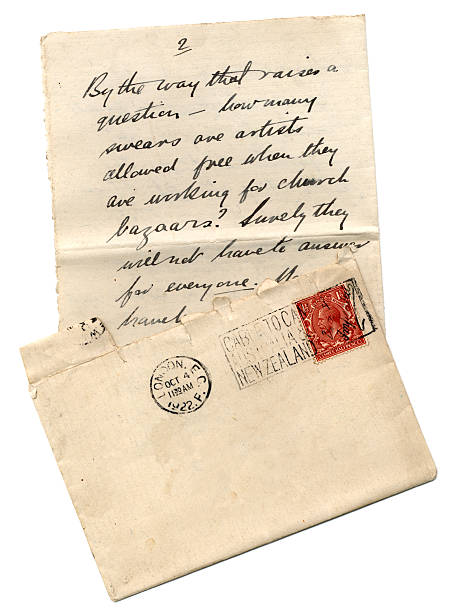 2
By the way that raises a
question – how many
swears are artists
allowed free when they
are working for church
bazaars? Surely they
will not have to answer
for everyone.
LONDON, E.C.
OCT 4
AM
1922. F.
CABLE TO CA
NEW ZEALAND